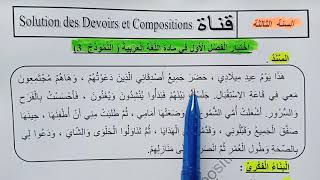 السنة الثالثة
قناة
Solution des Devoirs et Compositions
إختبار الفصل الأول في مادة اللغة العربية ( النموذج 3 )
السند :
هَذَا يَوْمُ عِيدِ مِيلَادِي ، حَضَرَ جَمِيعُ أَصْدِقَائِي الَّذِينَ دَعَوْتُهُمْ ، وَهَاهُمْ مُجْتَمِعُونَ
مَعِي فِي قَاعَةِ الاِسْتِقْبَالِ. جَلَسْتُ بَيْنَهُمْ فَبَدَأُوا يُنْشِدُونَ وَيُغَنُّونَ ، فَأَحْسَسْتُ بِالْفَرَحِ
وَالسُّرُورِ. أَشْعَلَتْ أُمِّي الشُّمُوعَ وَوَضَعَتْهَا أَمَامِي ، ثُمَّ طَلَبَتْ مِنِّي أَنْ أُطْفِئَهَا ، حِينَهَا
صَفَّقَ الْجَمِيعُ وَقَبَّلُونِي ، وَقَدَّمُوا لِي الْهَدَايَا ، ثُمَّ تَنَاوَلُوا الْحَلْوَى وَالشَّايَ ، وَدَعَوْا لِي
بِالصِّحَّةِ وَطُولِ الْعُمُرِ ثُمَّ انْصَرَفُوا إِلَى مَنَازِلِهِمْ.
البناء الفكري :